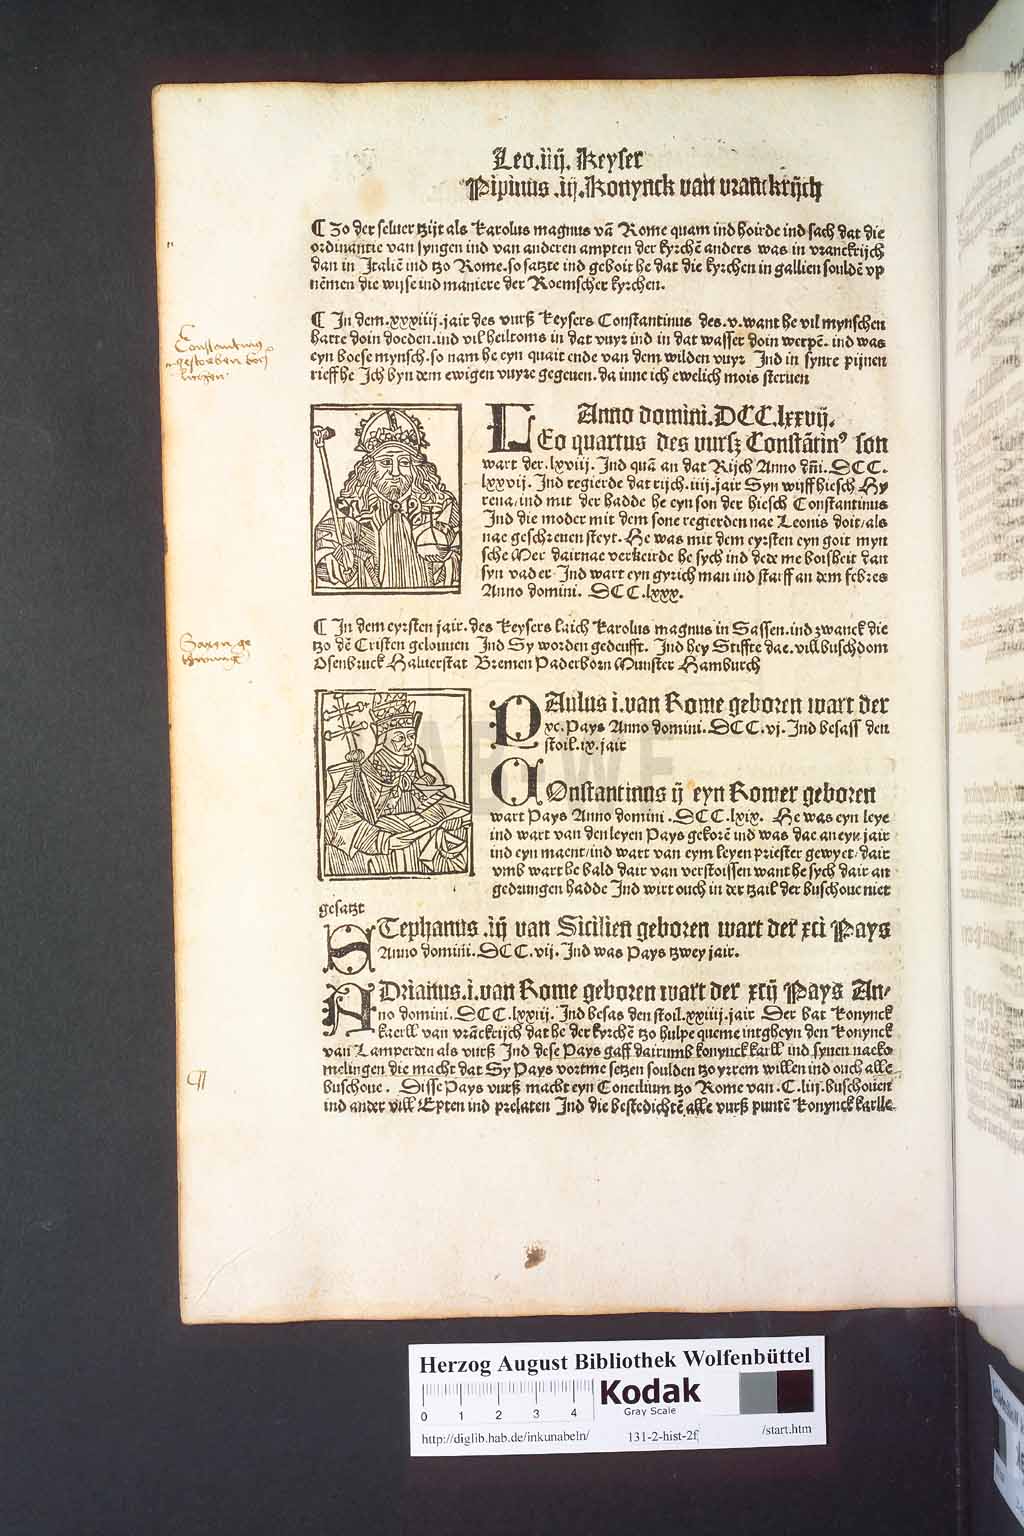 Leo.iiij. Keyser
Pipinus .iij. Konynck van vranckrijch
¶ Zo der seluer tzijt als Karolus magnus vā Rome quam ind hoirde ind sach dat die
ordinantie van syngen ind van anderen ampten der kyrchē anders was in vranckrijch
dan in Italiē ind tzo Rome. so satzte ind geboit he dat die kyrchen in gallien souldē vp
nēmen die wijse ind maniere der Roemscher kyrchen.
¶ In dem .xxxiiij. jair des vurß Keysers Constantinus des .v. want he vil mynschen
hatte doin doeden. ind vil heiltoms in dat vuyr ind in dat wasser doin werpē. ind was
eyn boese mynsch. so nam he eyn quait ende van dem wilden vuyr Ind in synre pijnen
rieff he Ich byn dem ewigen vuyre gegeuen. da inne ich ewelich mois steruen
Constantinus
gestorben
Anno domini. DCC.lxxvij.
LEo quartus des vurß Constātin⁹ son
wart der .lxviij. Ind quā an dat Rijch Anno dn̄i. DCC.
lxxvij. Ind regierde dat rijch .iiij. jair Syn wijff hiesch Hy
rena/ind mit der hadde he eyn son der hiesch Constantinus
Ind die moder mit dem sone regierden nae Leonis doit/als
nae geschreuen steyt. He was mit dem eyrsten eyn goit myn
sche Mer dairnae verkeirde he sych ind dede me boisheit dan
syn vader Ind wart eyn gyrich man ind starff an dem febres
Anno domini. DCC.lxxx.
¶ In dem eyrsten jair. des Keysers laich Karolus magnus in Sassen. ind zwanck die
tzo dē Cristen gelouuen Ind Sy worden gedeufft. Ind hey Stiffte dae .viij buschdom
Osenbruck Haluerstat Bremen Paderborn Munster Hamburch
Saxen ge
PAulus i. van Rome geboren wart der
xc. Pays Anno domini. DCC.vj. Ind besass den
stoil .ix. jair
COnstantinus ij eyn Romer geboren
wart Pays Anno domini .DCC.lxix. He was eyn leye
ind wart van den leyen Pays gekorē ind was dae an eyn jair
ind eyn maent/ind wart van eym leyen priester gewyet/dair
vmb wart he bald dair van verstoissen want he sych dair an
gedrungen hadde Ind wirt ouch in der tzail der buschoue niet
gesatzt
STephanus .iij van Sicilien geboren wart der xci Pays
Anno domini. DCC.vij. Ind was Pays tzwey jair.
ADrianus .i. van Rome geboren wart der xcij Pays An-
no domini. DCC.lxxiij. Ind besas den stoil .xxiiij. jair Der bat Konynck
kaerll van vrāckrijch dat he der kyrchē tzo hulpe queme intgheyn den Konynck
van Lamperden als vurß Ind dese Pays gaff dairumb konynck karll ind synen nacko
melingen die macht dat Sy Pays vortme setzen soulden tzo yrrem willen ind ouch alle
buschoue . Disse Pays vurß macht eyn Concilium tzo Rome van .C.liij. buschouen
ind ander vill Epten ind prelaten Ind die bestedichtē alle vurß puntē Konynck karlle
Herzog August Bibliothek Wolfenbüttel
0 1 2 3 4
Kodak
Gray Scale
http://diglib.hab.de/inkunabeln/ 131-2-hist-2f /start.htm